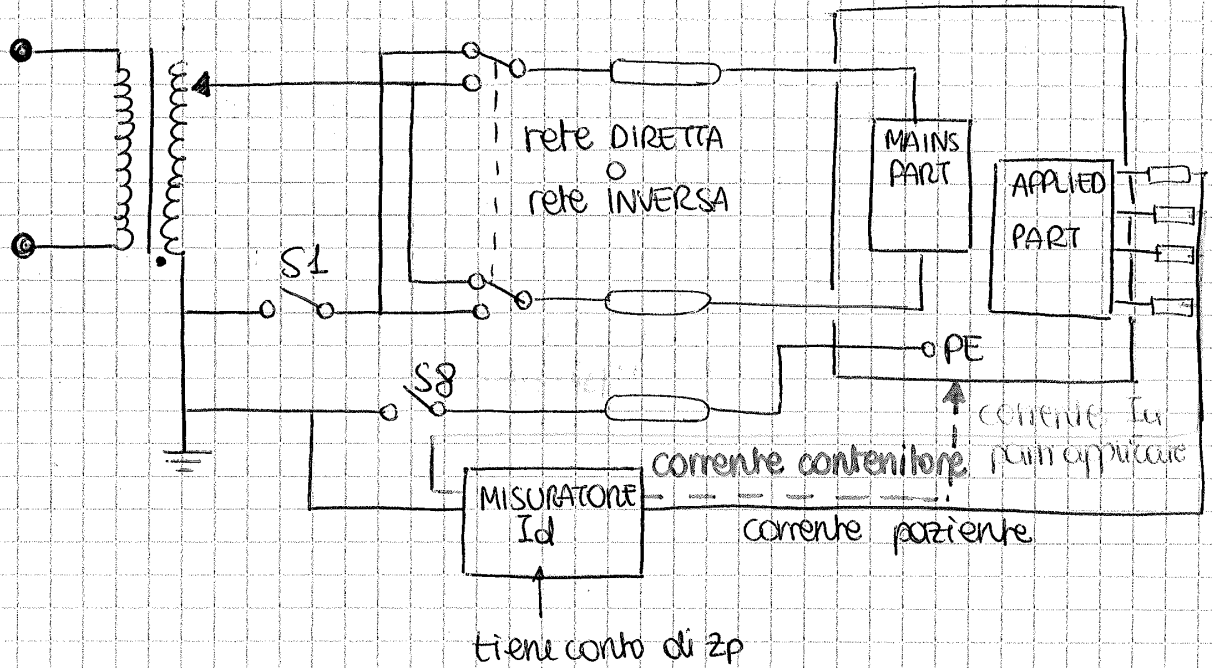 rete DIRETTA
o
rete INVERSA
MAINS
PART
APPLIED
PART
S1
PE
S8
corrente
corrente contenitore
MISURATORE
Id
corrente paziente
tiene conto di Zp